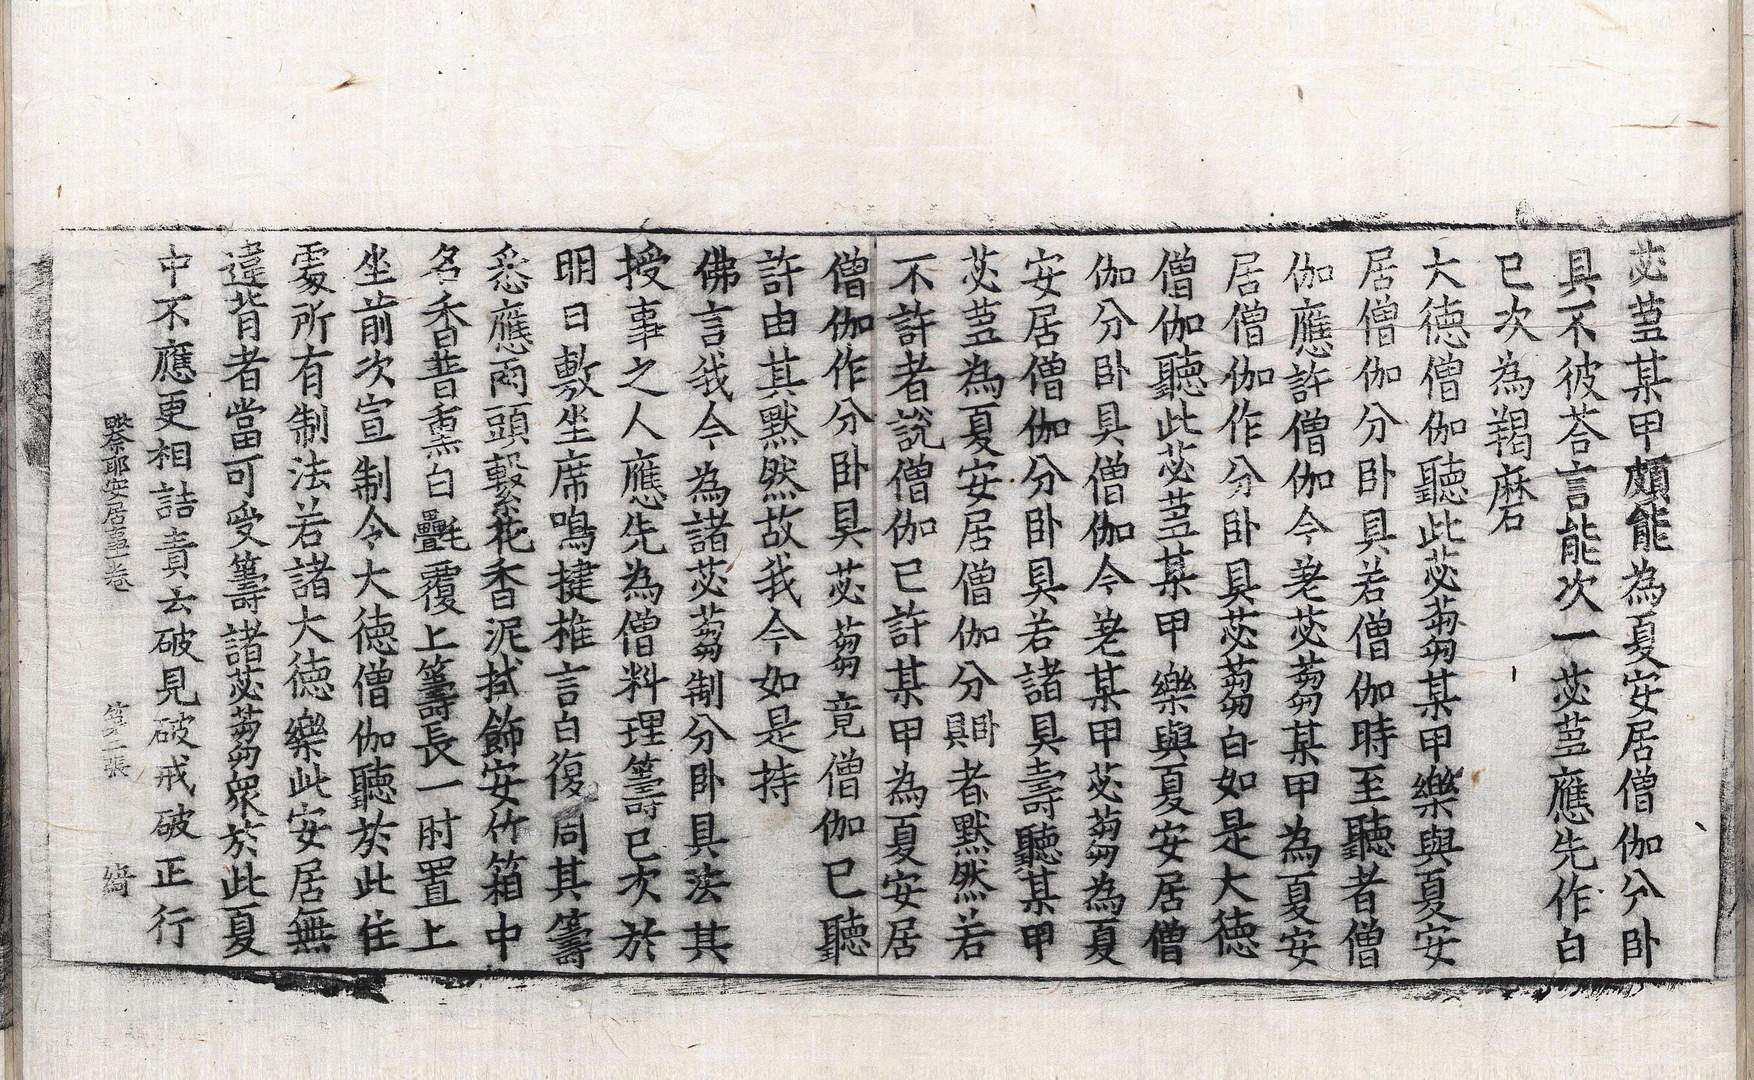 苾蒭某甲頗能為夏安居僧伽分卧
具不彼荅言能次一苾蒭應先作白
已次為羯磨
大德僧伽聽此苾蒭某甲樂與夏安
居僧伽分卧具若僧伽時至聽者僧
伽應許僧伽今差苾蒭某甲為夏安
居僧伽作分卧具苾蒭白如是大德
僧伽聽此苾蒭某甲樂與夏安居僧
伽分卧具僧伽今差某甲苾蒭為夏
安居僧伽分卧具若諸具壽聽某甲
苾蒭為夏安居僧伽分卧具者默然若
不許者說僧伽已許某甲為夏安居
僧伽作分卧具苾蒭竟僧伽已聽
許由其默然故我今如是持
佛言我今為諸苾蒭制分卧具法其
授事之人應先為僧料理籌已次於
明日敷坐席鳴揵椎言白復同其籌
悉應兩頭繫花香泥拭飾安竹箱中
名香普熏白㲲覆上籌長一肘置上
坐前次宣制令大德僧伽聽於此住
處所有制法若諸大德樂此安居無
違背者當可受籌諸苾蒭衆於此夏
中不應更相詰責云破見破戒破正行
𭊞耶安居事一卷　第二張　綺